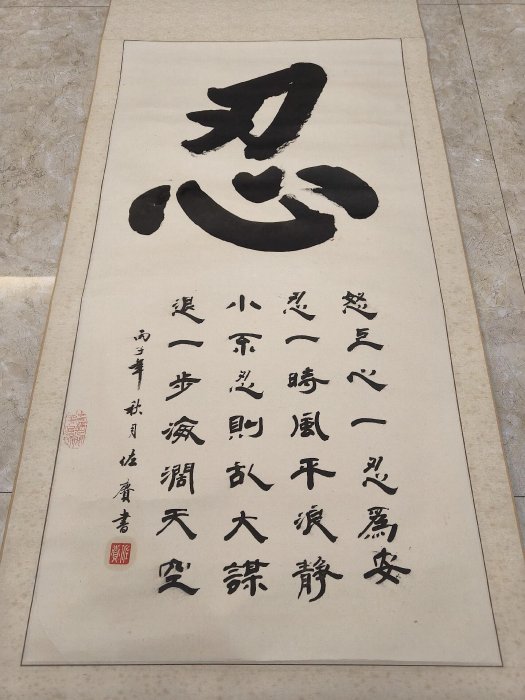 忍
怒心一忍爲安
忍一時風平浪靜
小不忍則乱大謀
退一步海濶天空
丙子年 秋月 佐書